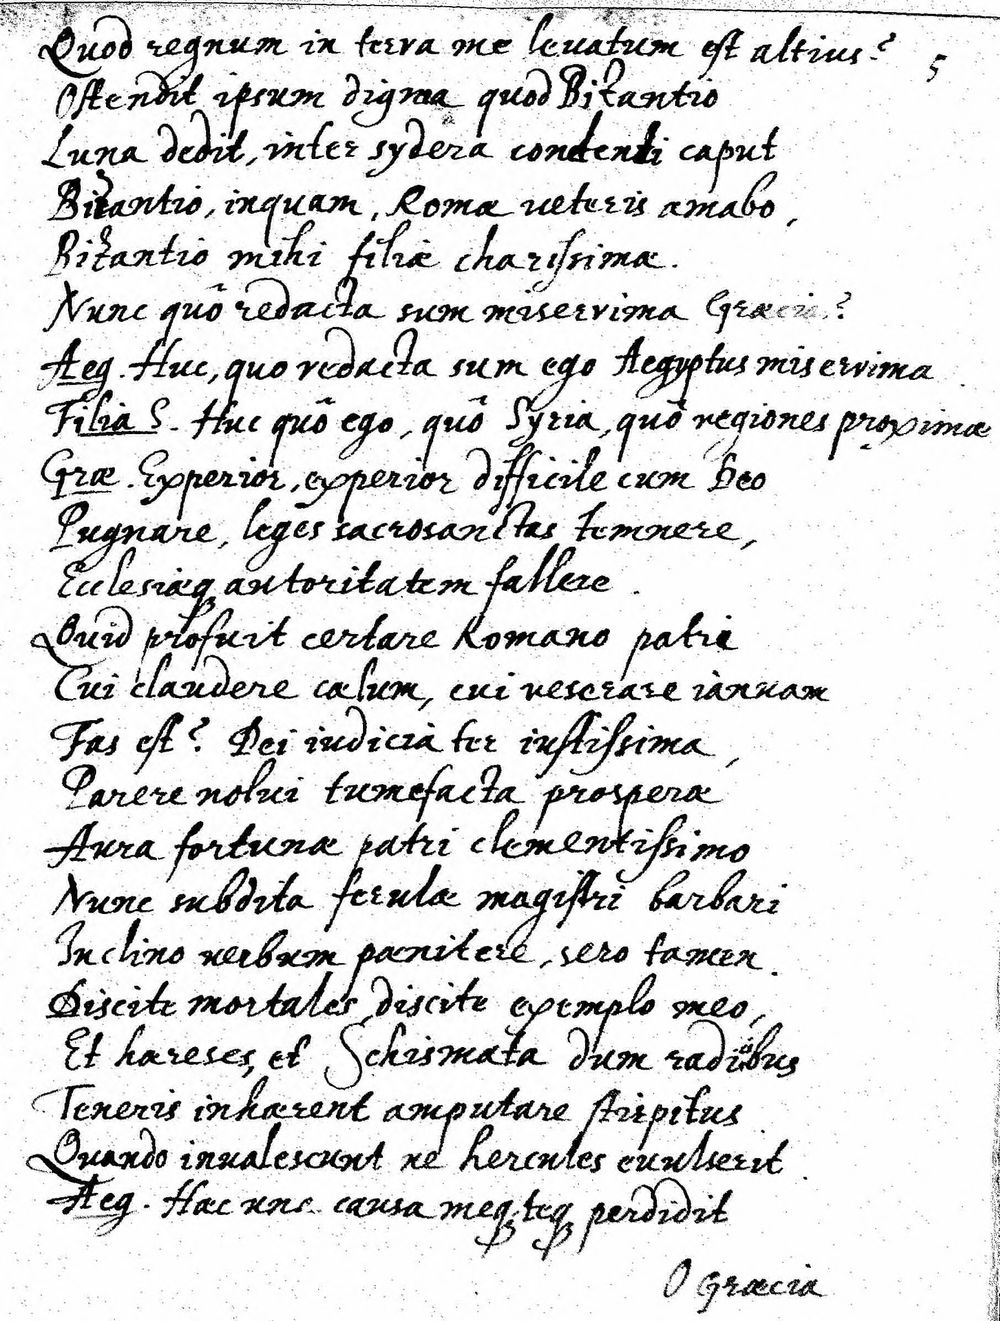 Quod regnum in terra me leuatum est altius? 5
Ostendit ipsum digna quod Bizantio
Luna dedit, inter sydera contendi caput
Bizantio, inquam, Romæ ueteris amabo,
Bizantio mihi filiæ charissimæ.
Nunc quô redacta sum miserrima Græcia?
Aeg. Huc, quo redacta sum ego Aegyptus miserrima
Filia S. Huc quô ego, quô Syria, quô regiones proximæ
Græ. Experior, experior difficile cum Deo
Pugnare, leges sacrosanctas temnere,
Ecclesiæq autoritatem fallere.
Quid profuit certare Romano patri
Cui claudere cælum, cui reserare iànuam
Fas est? Dei iudicia ter iustissima,
Parere nolui tumefacta prosperæ
Aura fortunæ patri clementissimo
Nunc subdita ferulæ magistri barbari
Inclino uerbum pænitere, sero tamen.
Discite mortales, discite exemplo meo,
Et hæreses, et Schismata dum radicibus
Teneris inhærent amputare stirpitus
Quando inualescunt ne hercules euulserit.
Aeg. Hæc unc causa meq, teq perdidit
O Græcia